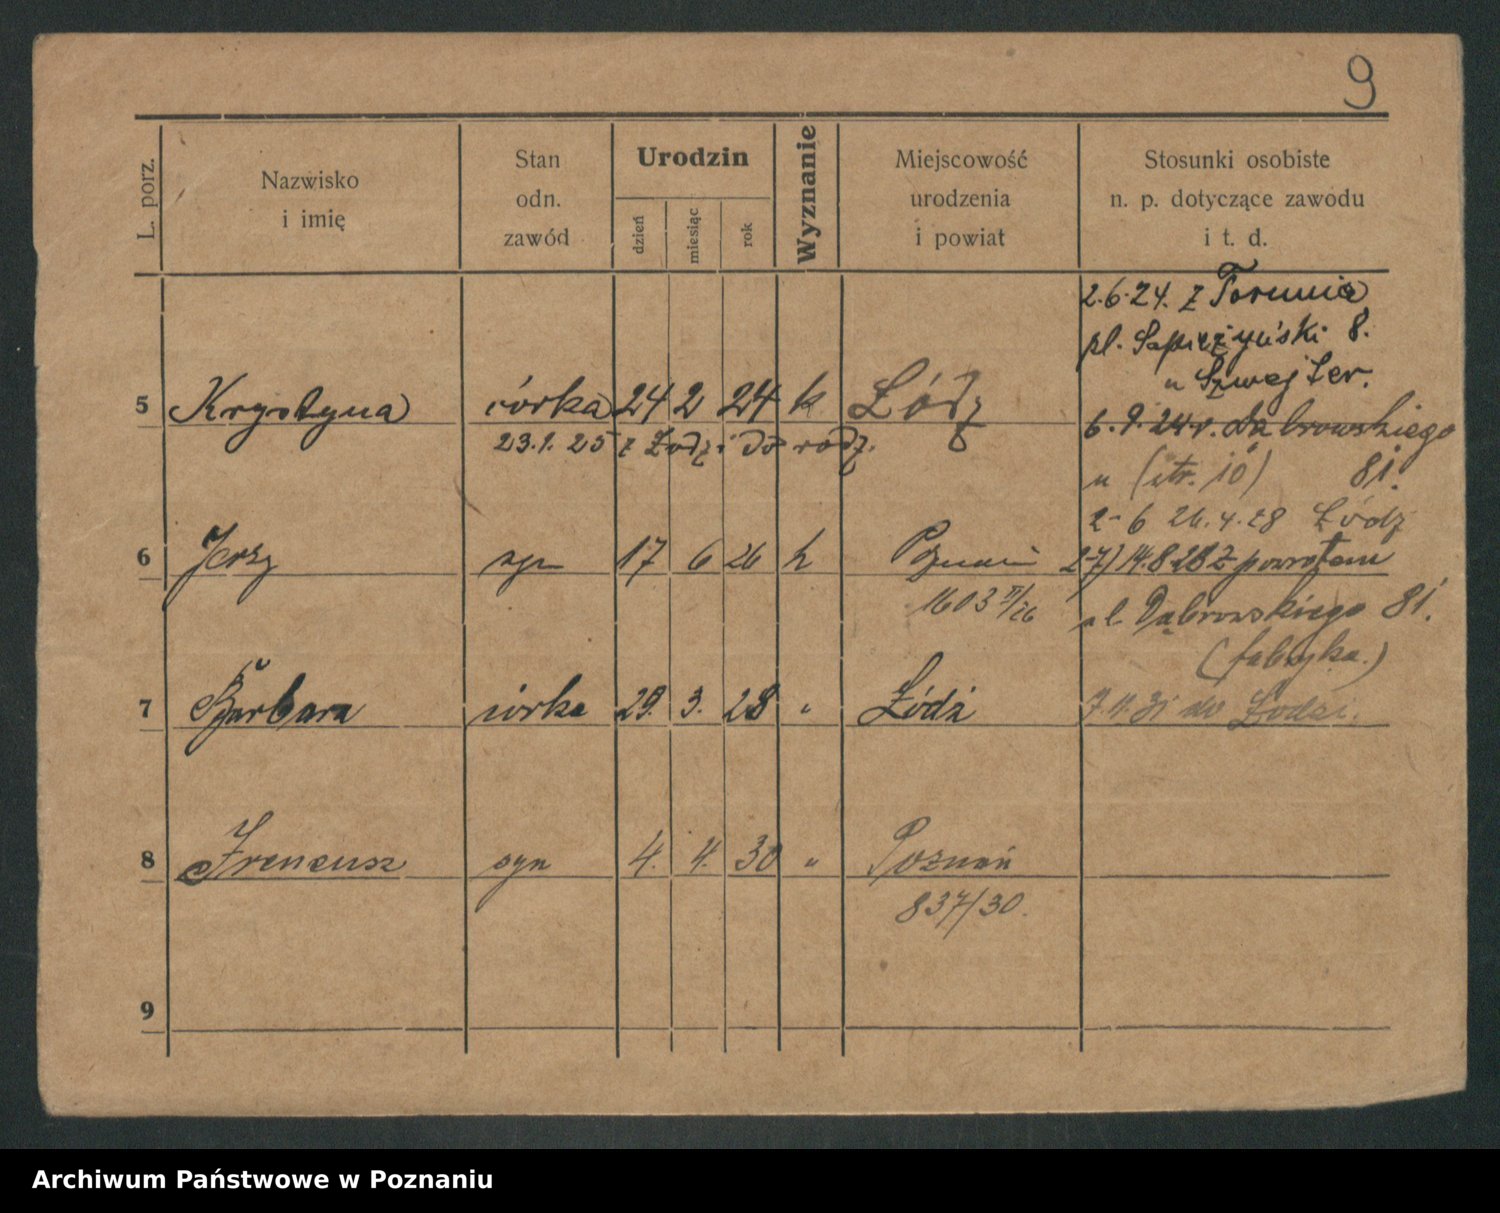 9
L. porz.
Nazwisko
i imię
Stan
odn.
zawód
Urodzin
dzień
miesiąc
rok
Wyznanie
Miejscowość
urodzenia
i powiat
Stosunki osobiste
n. p. dotyczące zawodu
i t. d.
2.6.24. z Torunia
pl. Sapieżyński 8.
u
5 Krystyna córka 24 2 24 k Łódź
23.1.25 z Łodzi do rodz.
6.9.24 Dąbrowskiego
u (str. 10) 81.
2-6 26.4.28 Łódź
6 Jerzy syn 17 6 26 k Poznań
1603 II/26
2-7) 14.8.28 z powrotem
ul. Dąbrowskiego 81.
(fabryka.)
7 Barbara córka 29. 3. 28 " Łódź
7.11.31 do Łodzi.
8 Ireneusz syn 4. 4. 30 " Poznań
837/30.
9
Archiwum Państwowe w Poznaniu